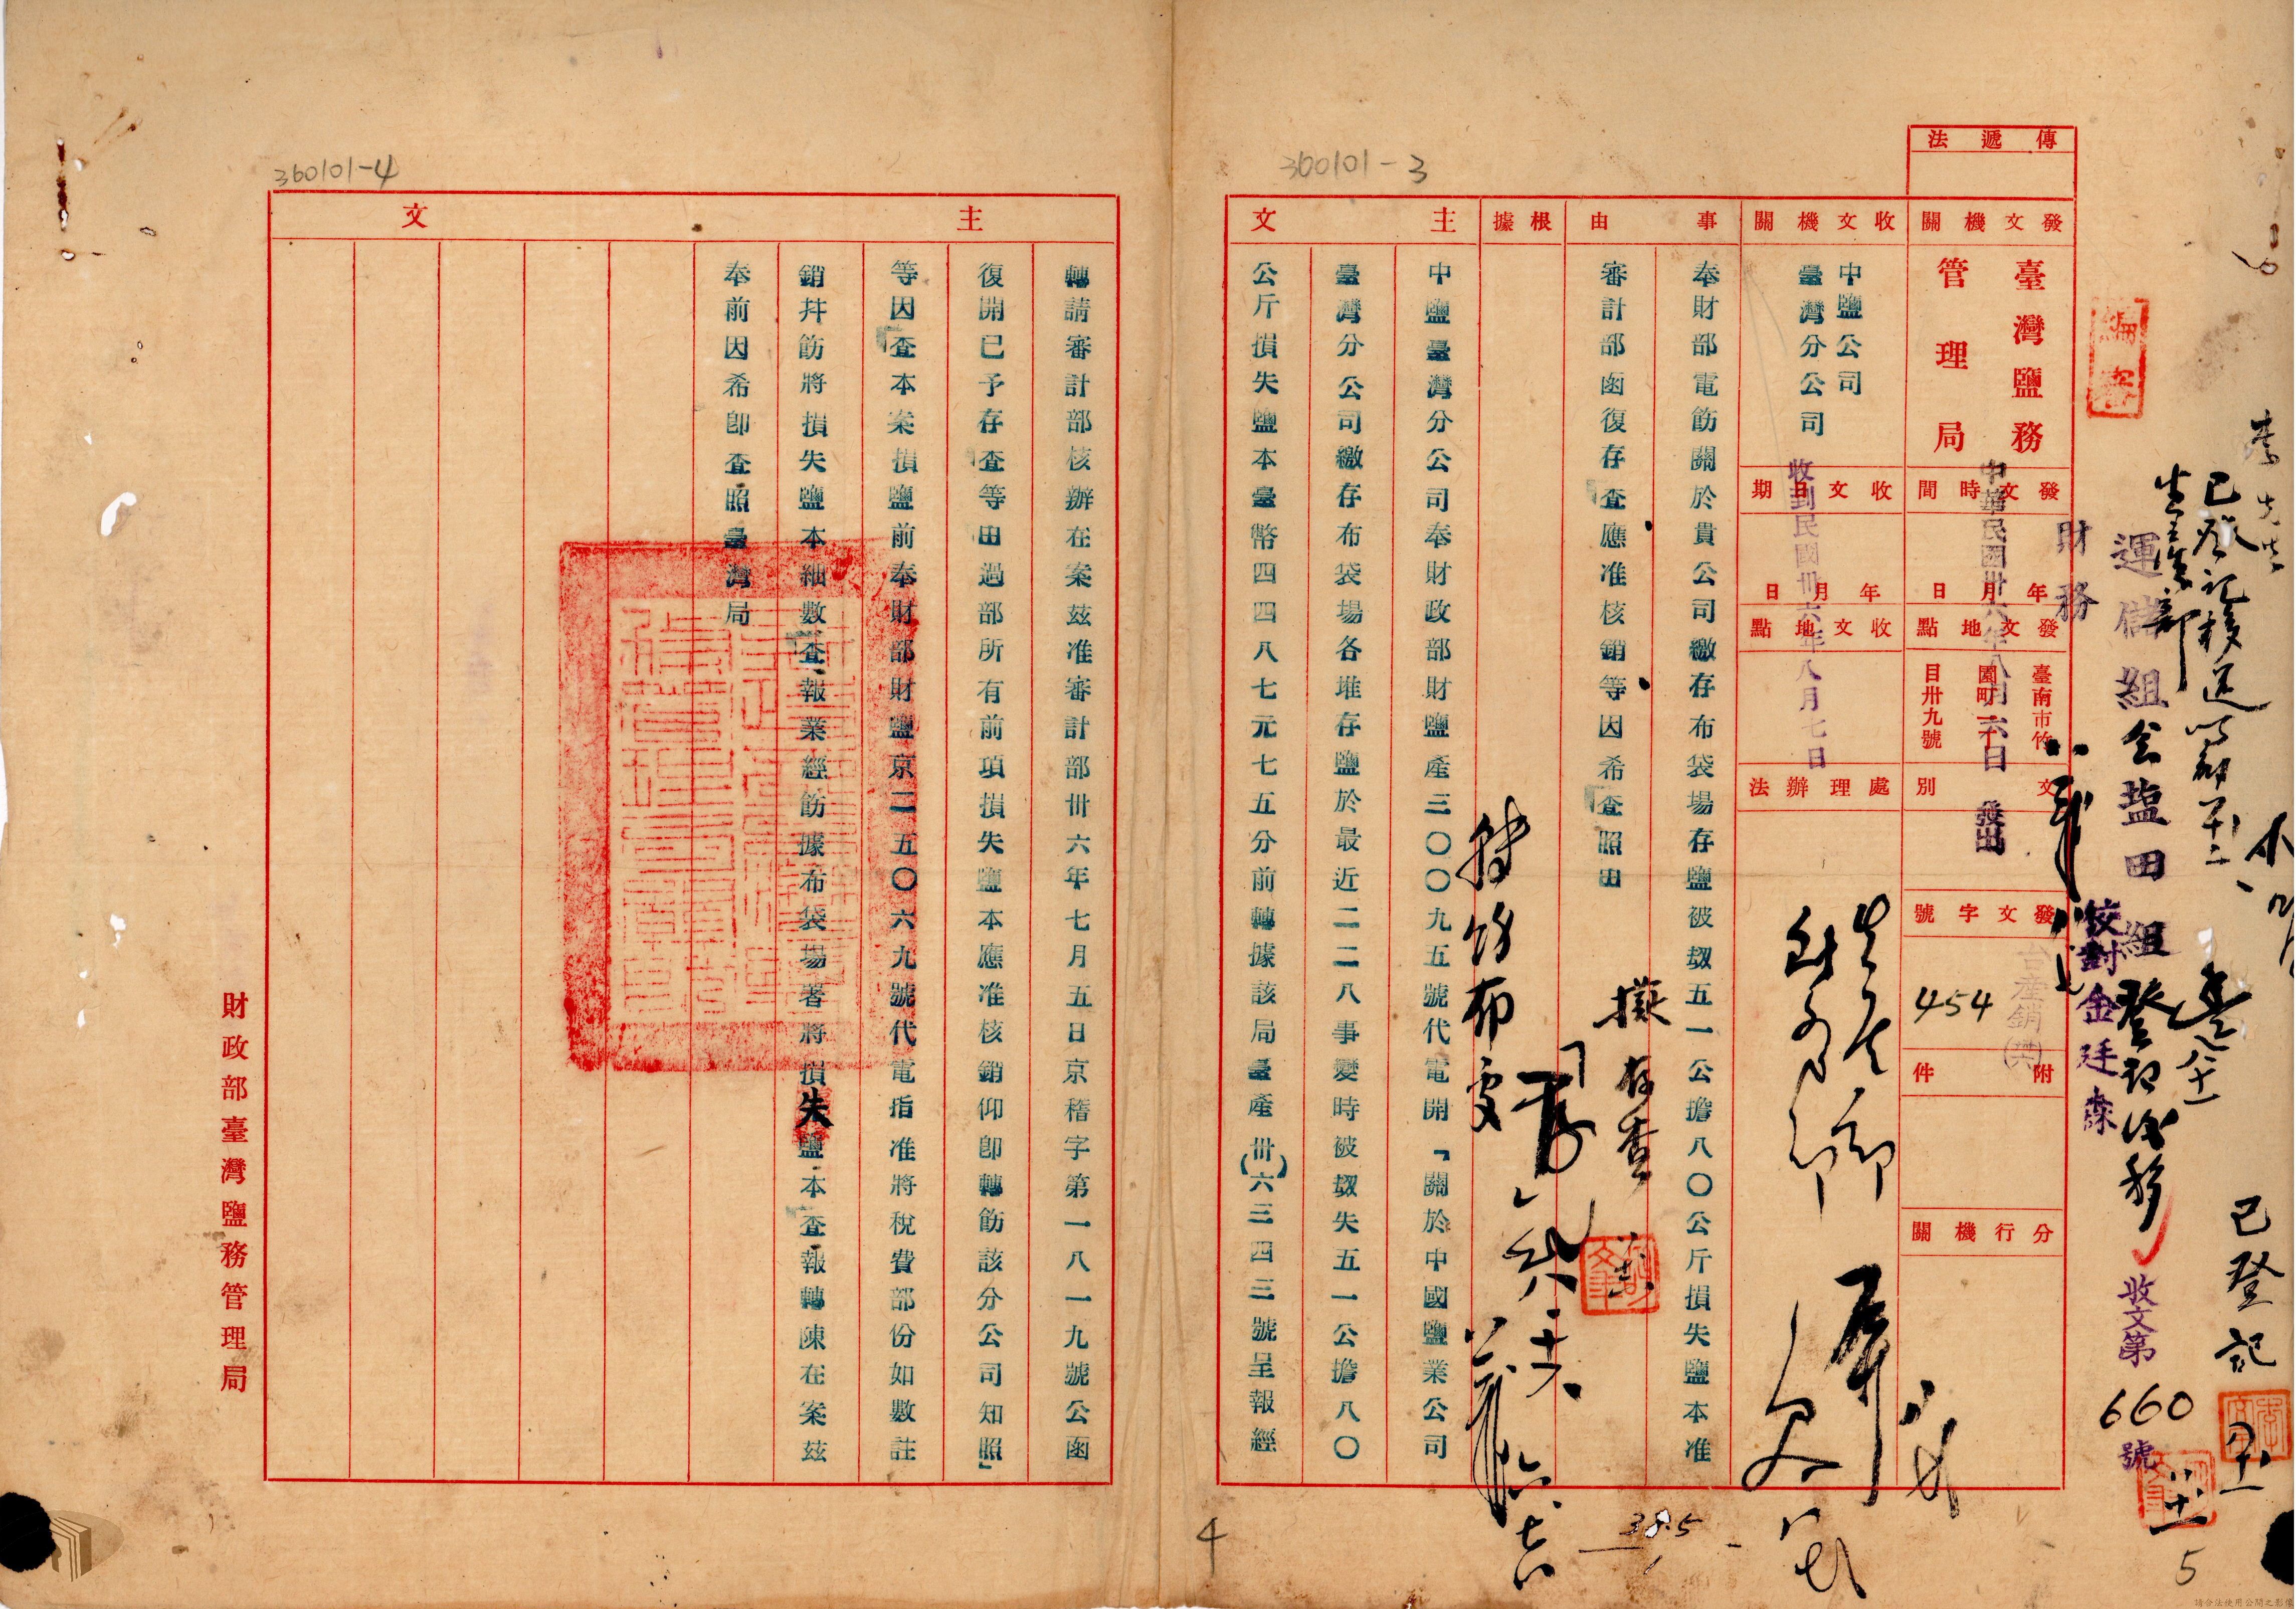 傳遞法
發文機關
臺灣鹽務
管理局
收文機關
中鹽公司
臺灣分公司
事由
奉財部電飭關於貴公司繳存布袋場存鹽被刼五一公擔八〇公斤損失鹽本准
審計部函復存查應准核銷等因希查照由
根據
發文時間
年月日
中華民國卅六年八月六日發出
收文日期
年月日
收到民國卅六年八月七日
發文地點
臺南市竹
園町一丁
目卅九號
收文地點
文別
處理辦法
發文字號
台產銷
454
附件
分行機關
主文
中鹽臺灣分公司奉財政部財鹽產三〇〇九五號代電開「關於中國鹽業公司
臺灣分公司繳存布袋場各堆存鹽於最近二二八事變時被刼失五一公擔八〇
公斤損失鹽本臺幣四四八七元七五分前轉據該局臺產(卅六)三四三號呈報經
主文
轉請審計部核辦在案茲准審計部卅六年七月五日京稽字第一八一九號公函
復開已予存查等由過部所有前項損失鹽本應准核銷仰卽轉飭該分公司知照」
等因查本案損鹽前奉財部財鹽京二五〇六九號代電指准將稅費部份如數註
銷幷飭將損失鹽本細數查報業經飭據布袋場署將損失鹽本查報轉陳在案茲
奉前因希卽查照臺灣局
財政部臺灣鹽務管理局
財務
運儲組会塩田組登記後移
校對金廷森
收文第660號
已登記
擬存查
轉飭布处
360101-3
360101-4
38.5
4
5
請合法使用公開之影像